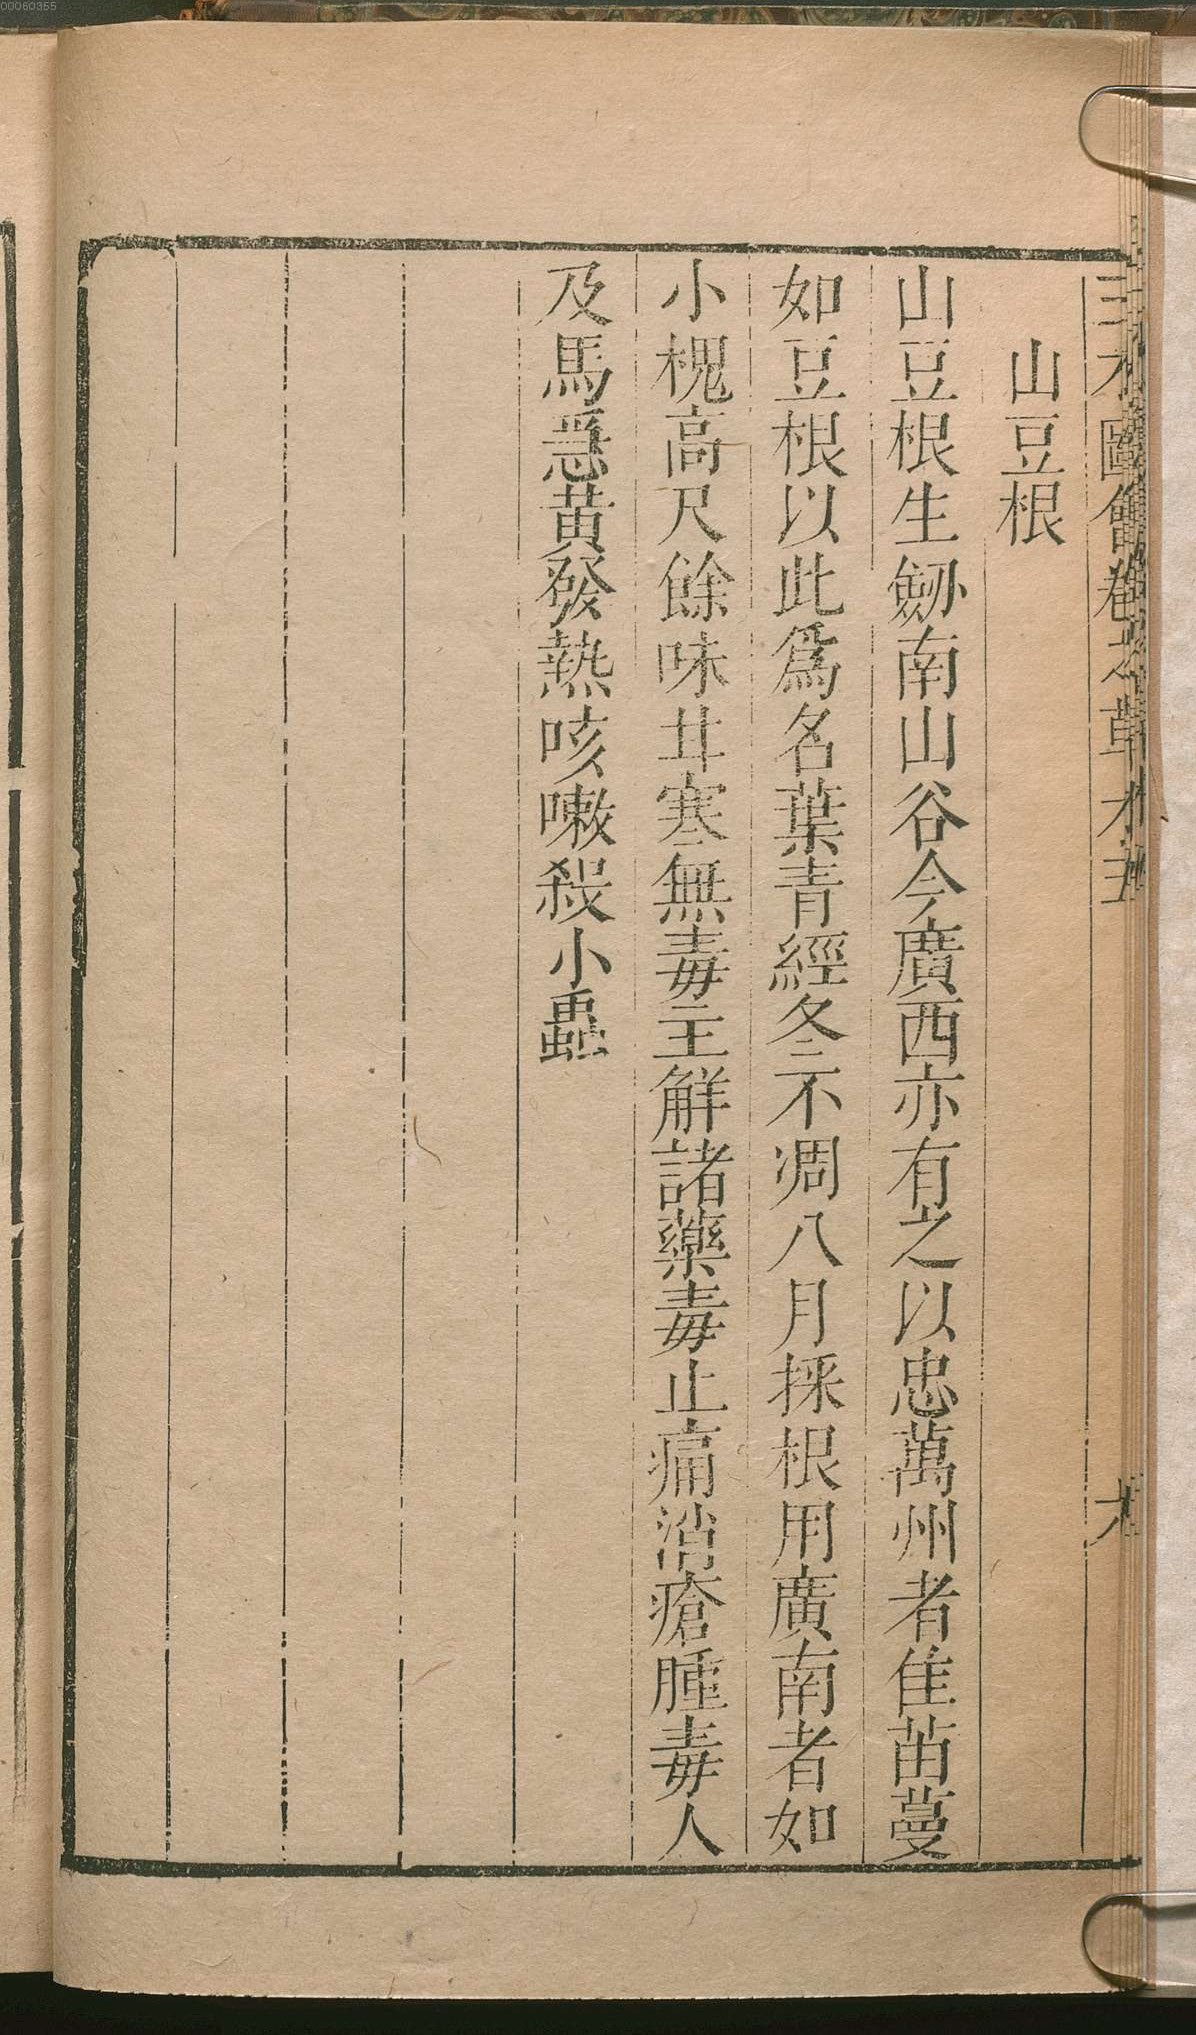 三才圖會卷之草木五
山豆根
山豆根生劒南山谷今廣西亦有之以忠萬州者佳苗蔓
如豆根以此爲名葉青經冬不凋八月採根用廣南者如
小槐高尺餘味甘寒無毒主解諸藥毒止痛消瘡腫毒人
及馬急黃發熱咳嗽殺小蟲
00060355